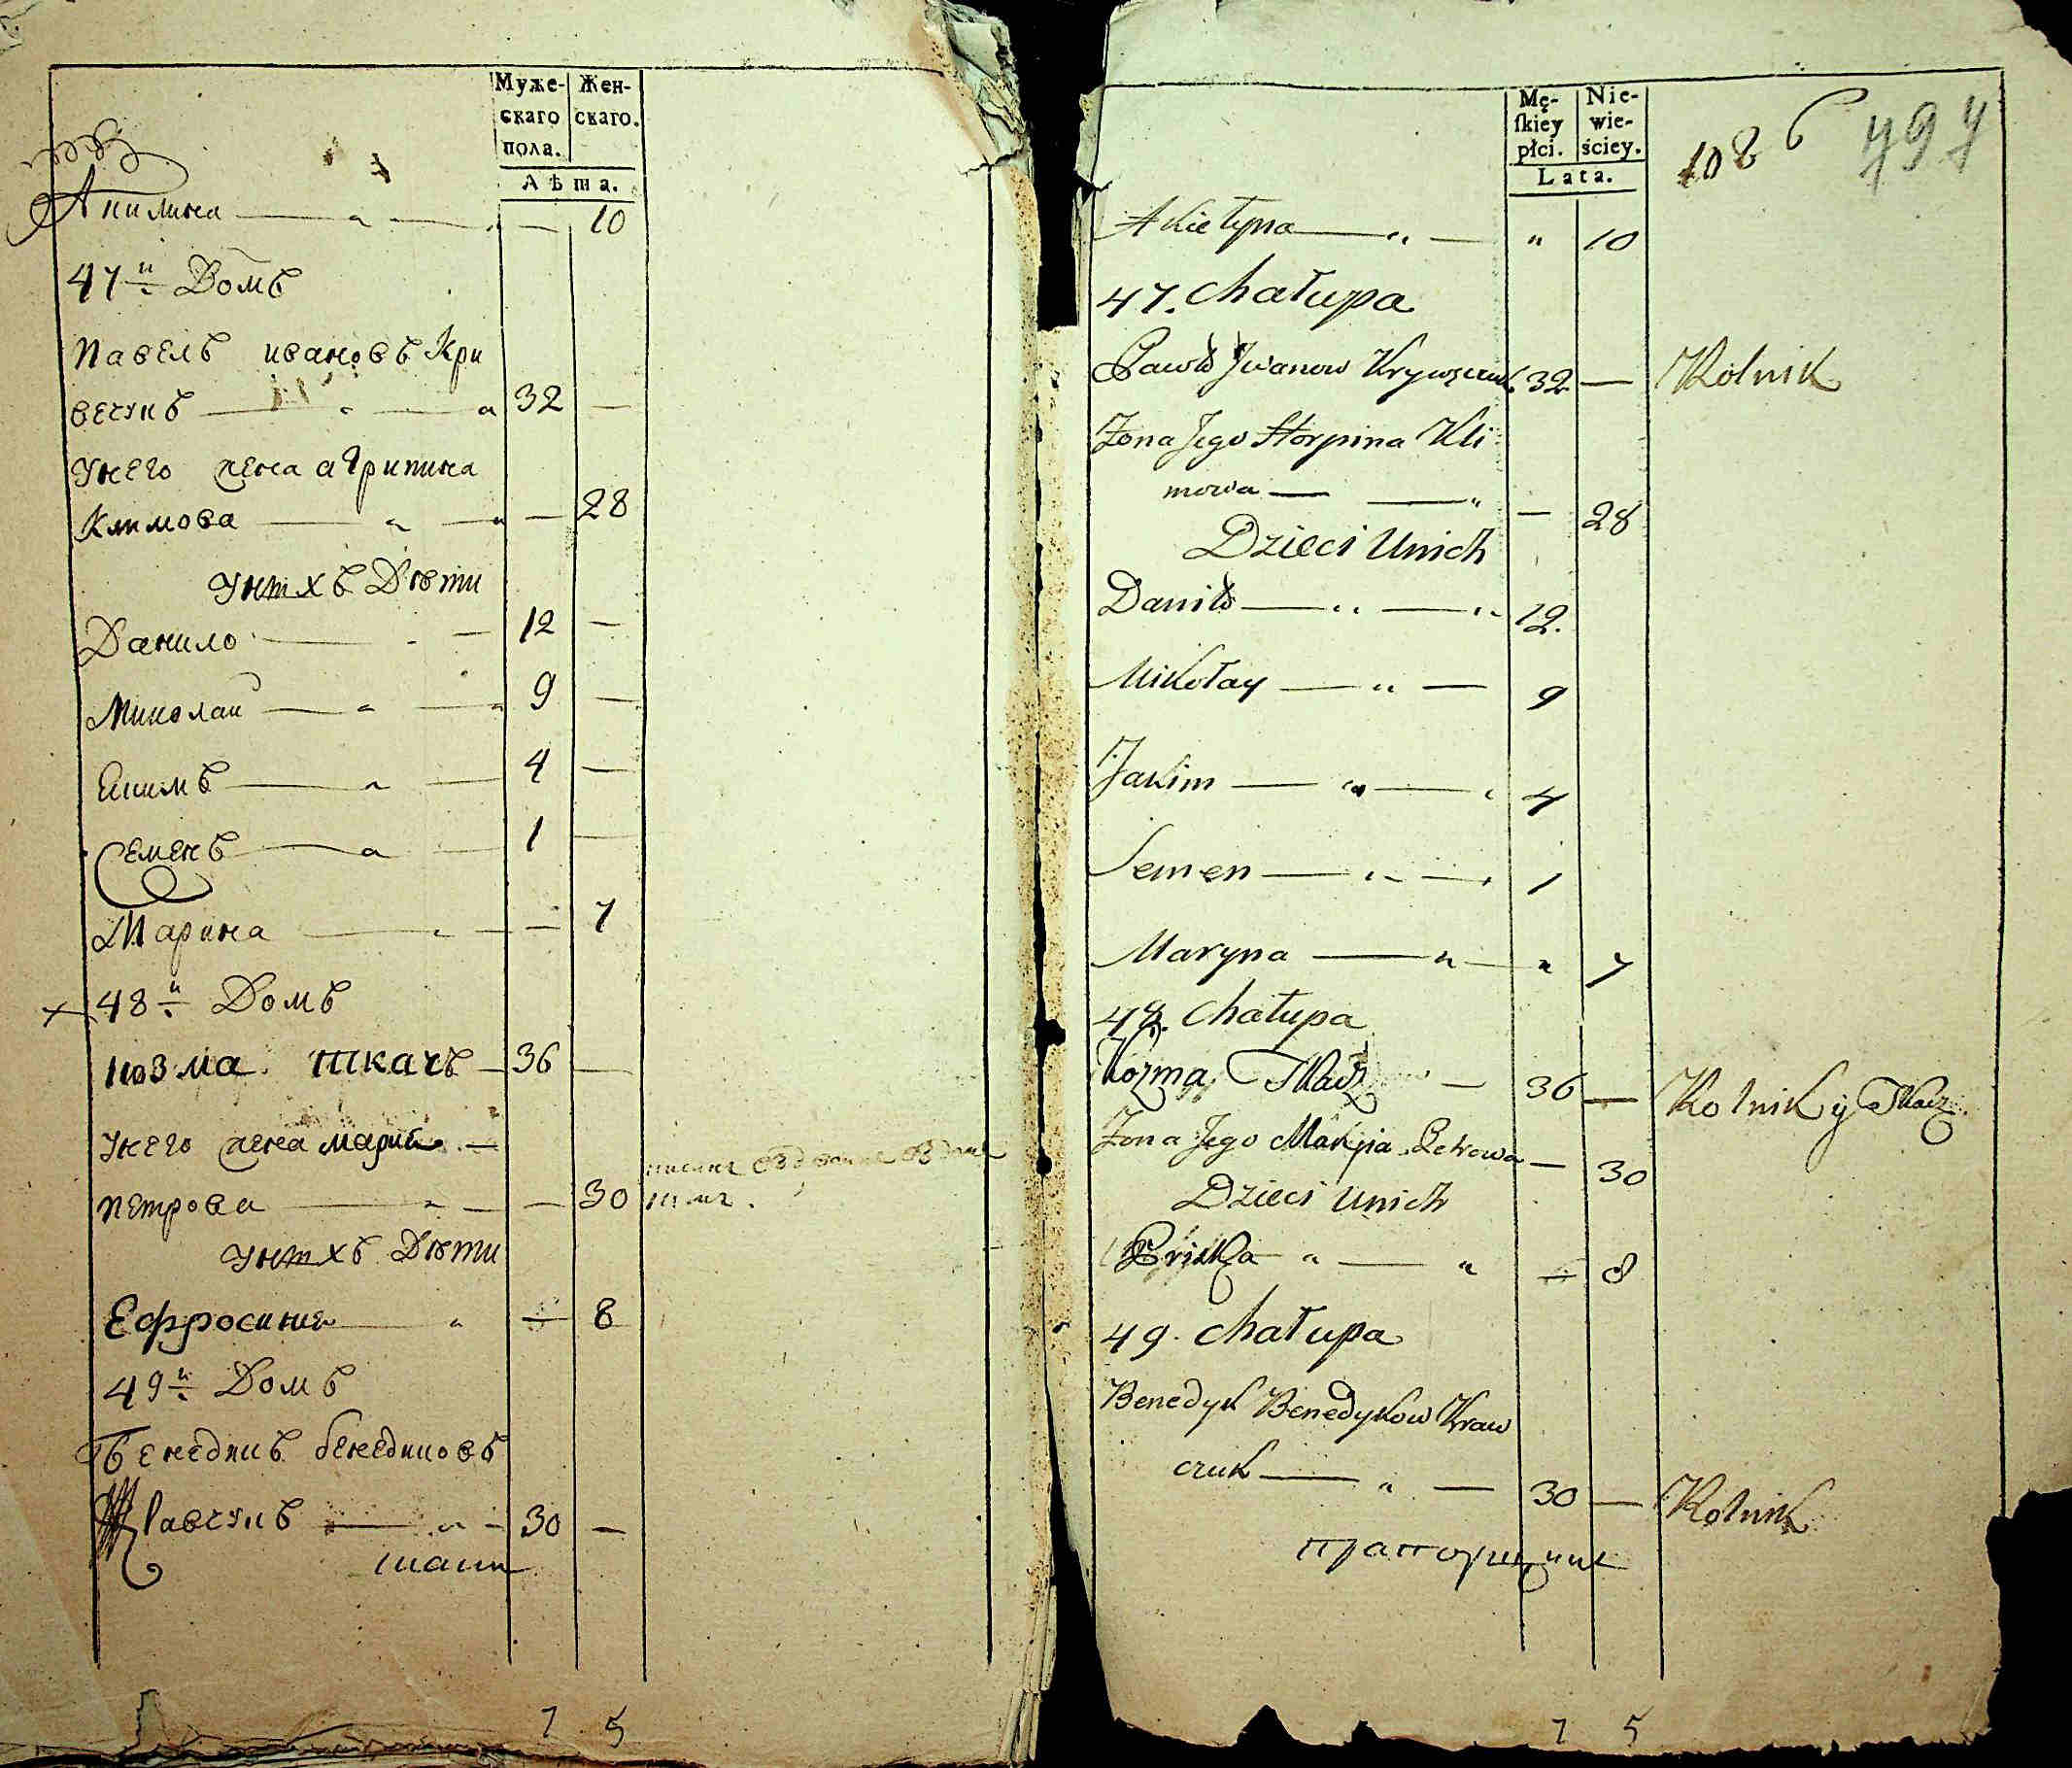 Муже-
скаго
пола.
Жен-
скаго.
Лѣта.
Акилина — „ — — 10
47й Домъ
Павелъ ивановъ Кри
вечукъ — „ — „ 32 —
Унего жена агрипина
Климова — „ — „ — 28
Унихъ Дѣти
Данило — - — 12 —
Миколаи — „ — 9 —
Екимъ — „ — 4 —
Семенъ — „ — 1 —
Марина — „ — — 7
48й Домъ
козма ткачъ — 36 —
Унего жена мария —
петрова — „ — — 30
Унихъ Дѣти
Ефросиния — „ — 8
49й Домъ
Бенедикъ бенедиковъ
Кравчукъ — „ — 30 —
7 5
Mę-
skiey
płci.
Nie-
wie-
ściey.
Lata.
108 6 797
Akilyna — „ — „ 10
47. Chałupa
Pawło Jwanow Krywęczuk 32 — Rolnik
Żona Jego Horpina Kli
mowa — — „ — 28
Dzieci Unich
Daniło — „ — „ 12.
Mikołay — „ — 9
Jakim — „ — „ 4
Semen — „ — 1
Maryna — „ — „ 7
48. Chałupa
Kozma Tkacz — 36 — Rolnik y Tkacz
Żona Jego Maryia Petrowa — 30
Dzieci Unich
Pryska — „ — „ — 8
49. Chałupa
Benedyk Benedykow Kraw
czuk — „ — 30 — Rolnik
прапорщикъ
7 5